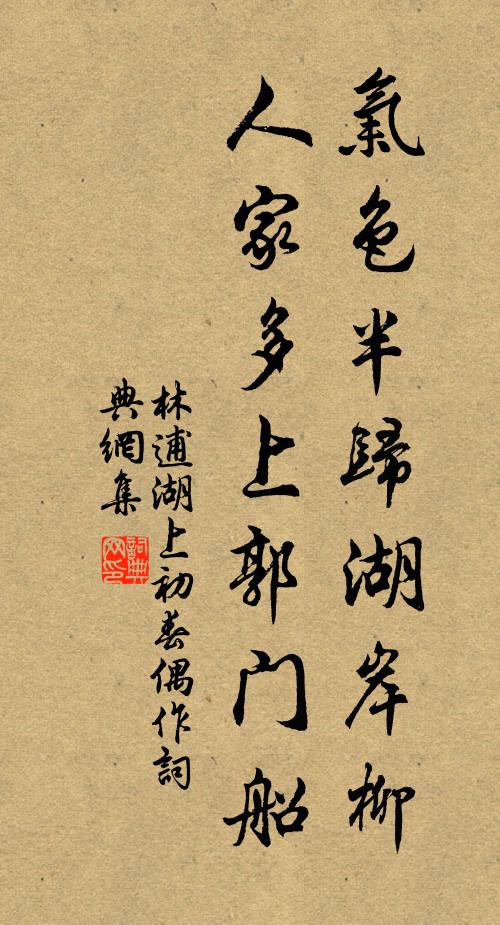 氣色半歸湖岸柳
人家多上郭门船
林逋湖上初春偶作詞
典網集
詞典
网印